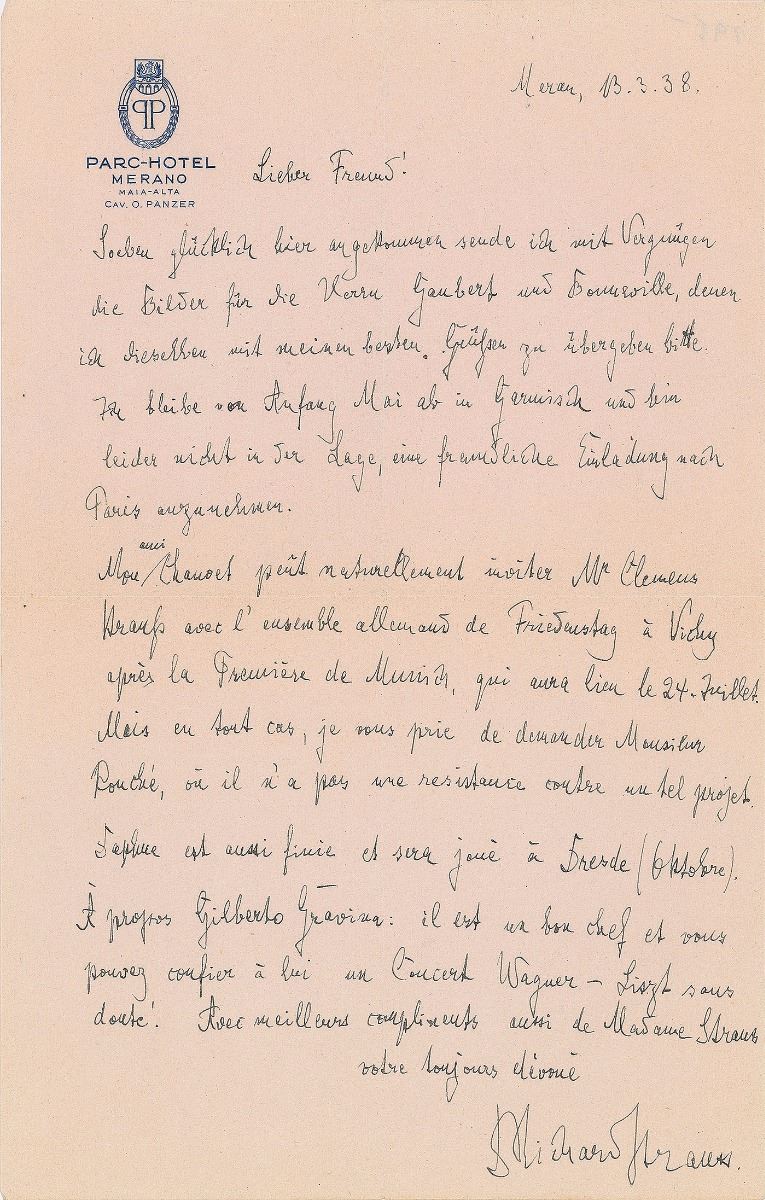 PP
PARC-HOTEL
MERANO
MAIA-ALTA
CAV. O. PANZER
Meran, 13.3.38.
Lieber Freund!
Soeben glücklich hier angekommen sende ich mit Vergnügen
die Bilder für die Herrn Gaubert und Bonneville, denen
ich dieselben mit meinen besten Grüßen zu übergeben bitte.
Ich bleibe von Anfang Mai ab in Garmisch und bin
leider nicht in der Lage, eine freundliche Einladung nach
Paris anzunehmen.
Mon ami Chauvet peut naturellement inviter Mr Clemens
Krauß avec l'ensemble allemand de Friedenstag à Vichy
après la Première de Munich, qui aura lieu le 24. Juillet.
Mais en tout cas, je vous prie de demander Monsieur
Rouché, ou il n'a pas une resistance contre un tel projet.
Daphne est aussi finie et sera joué à Dresde (Oktobre).
À propos Gilberto Gravina: il est un bon chef et vous
pouvez confier à lui un Concert Wagner – Liszt sans
doute! Avec meilleurs compliments aussi de Madame Strauss
votre toujours dévoué
Richard Strauss.